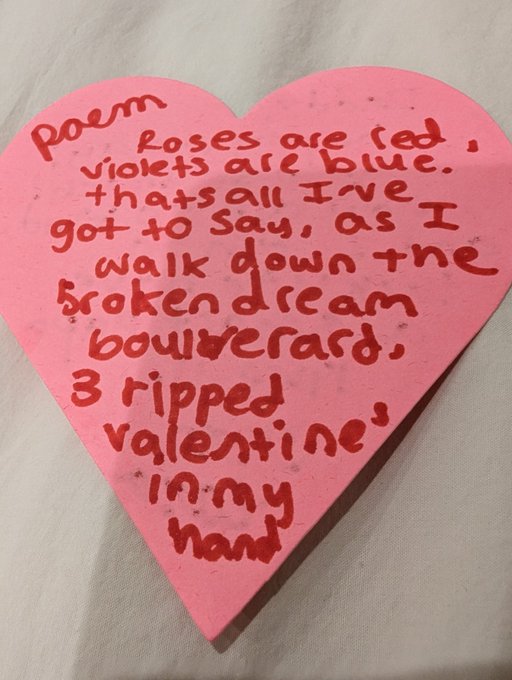 poem
Roses are red,
violets are blue.
thats all I've
got to say, as I
walk down the
broken dream
boulverard,
3 ripped
valentines
in my
hand